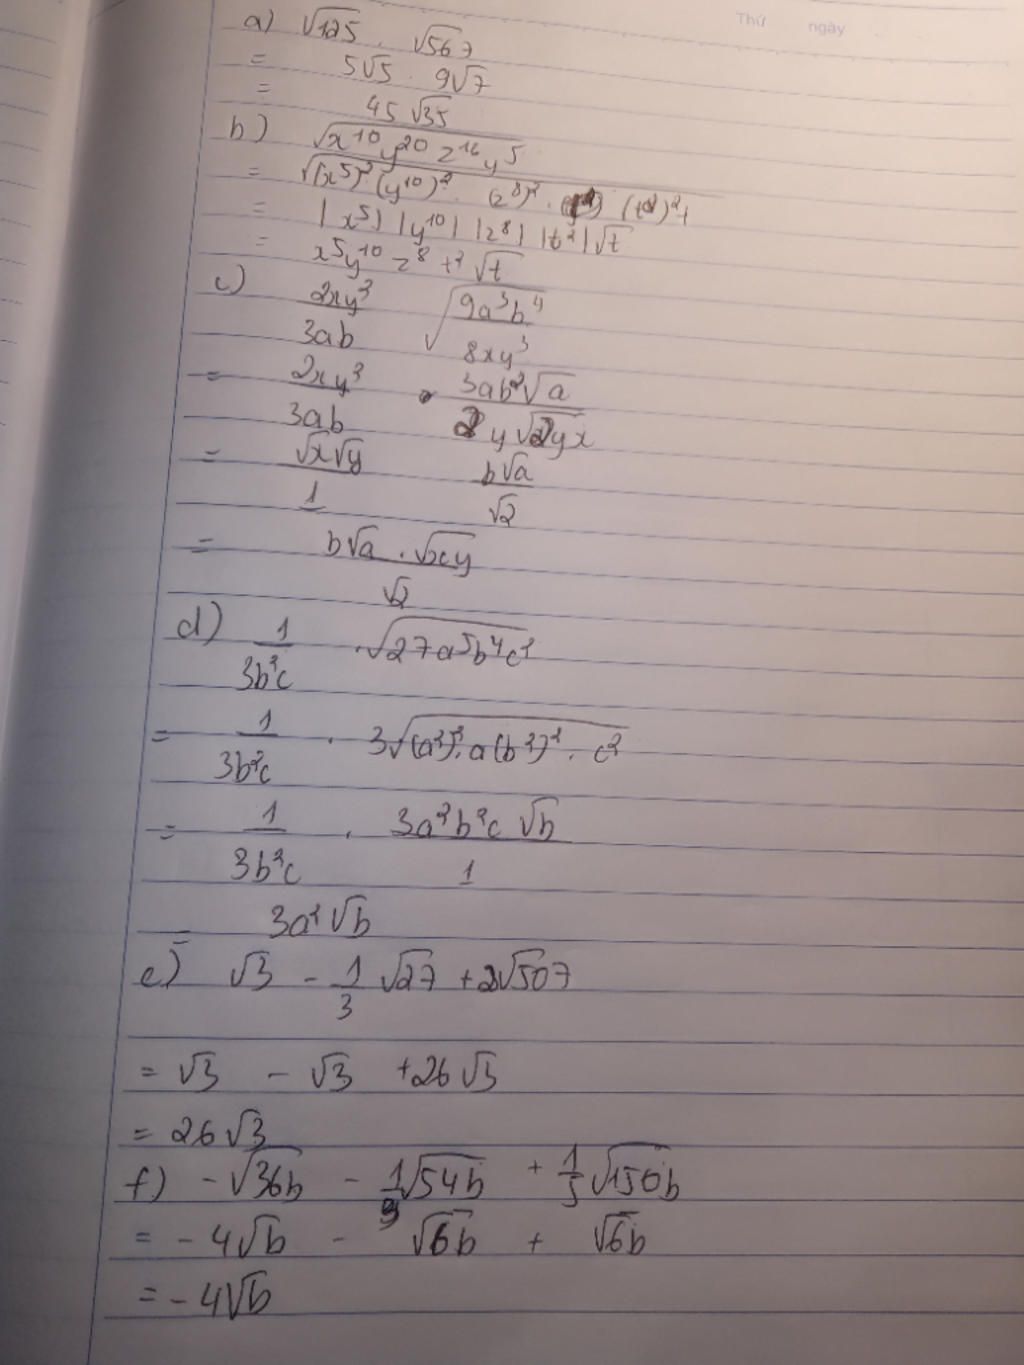 Thứ ngày
a) √125 . √567
= 5√5 . 9√7
= 45√35
b) √x¹⁰y²⁰z¹⁶y⁵
= √(x⁵)² (y¹⁰)² . (z⁸)² . (t²)² t
= |x⁵| |y¹⁰| |z⁸| |t²| √t
= x⁵y¹⁰z⁸t²√t
c) 2xy³/3ab √9a³b⁴/8xy³
= 2xy³/3ab . 3ab²√a/2y√2yx
= √x√y/1 b√a/√2
= b√a . √xy/√2
d) 1/3b²c . √27a⁵b⁴c²
= 1/3b²c . 3√(a²)² . a(b²)² . c²
= 1/3b²c . 3a²b²c√b/1
= 3a²√b
e) √3 - 1/3 √27 + 2√507
= √3 - √3 + 26√3
= 26√3
f) -√36b - 1/3√54b + 1/5√150b
= -4√b - √6b + √6b
= -4√b